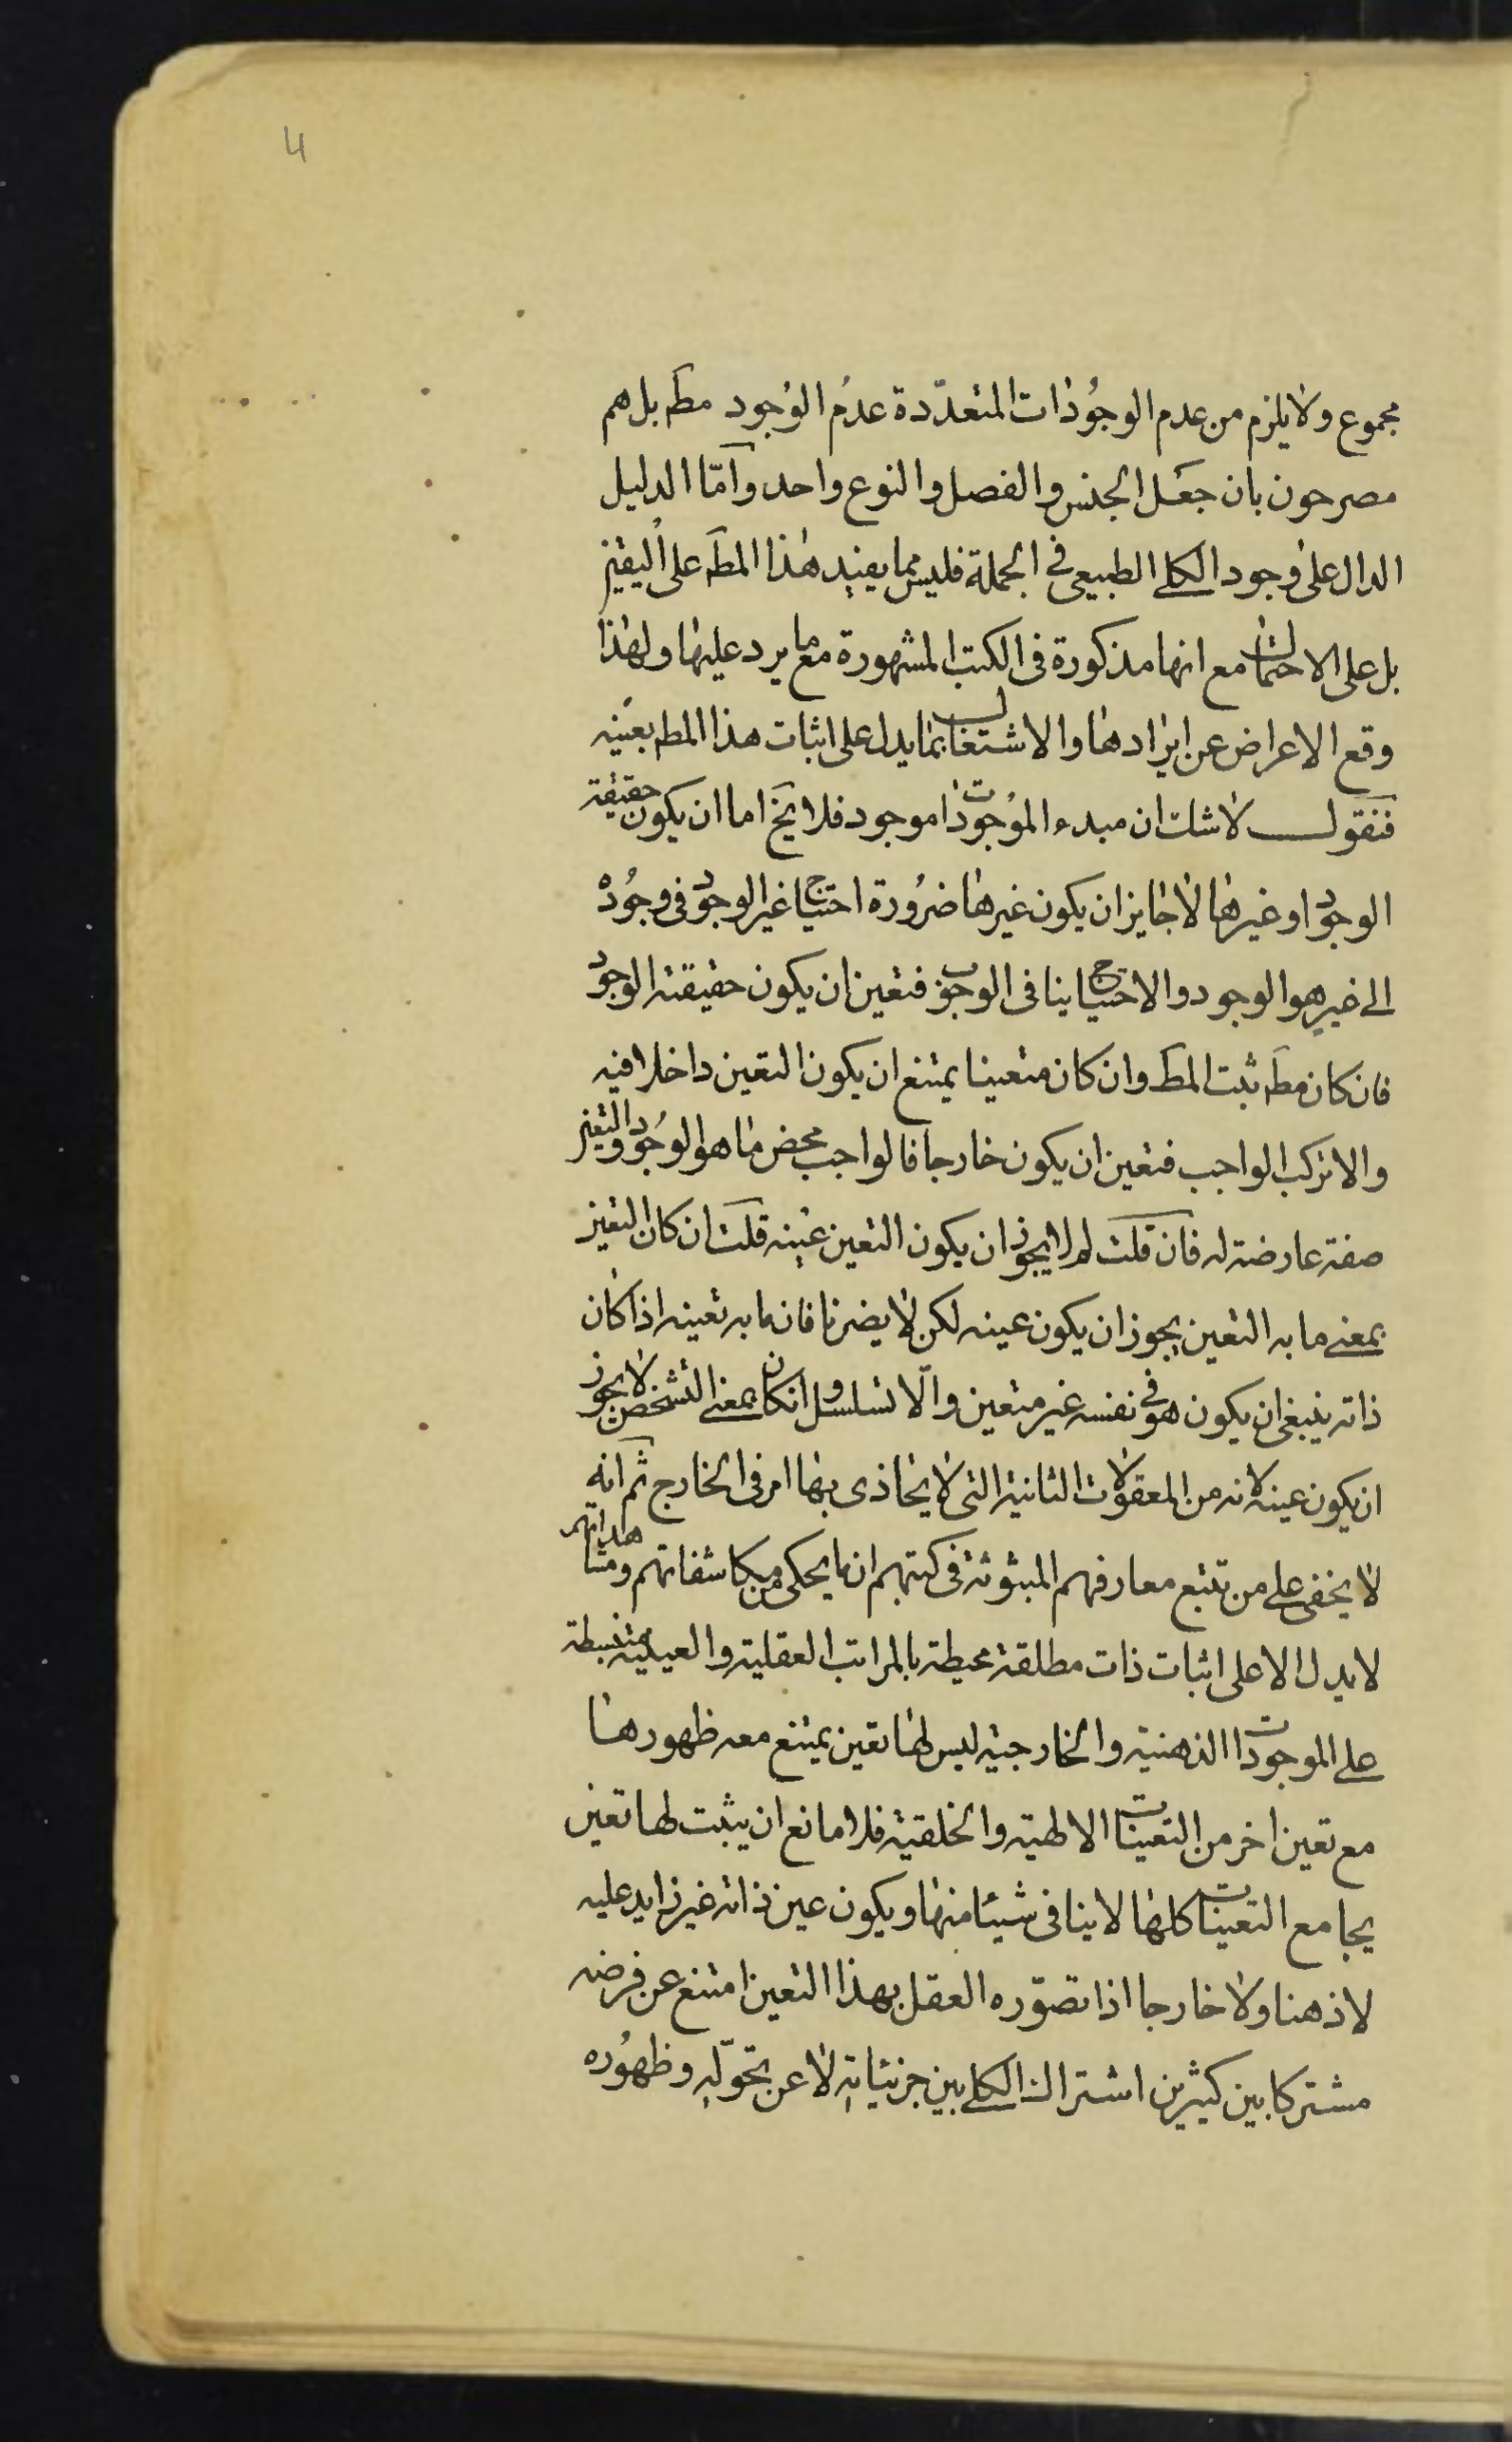 4
مجموع ولا يلزم من عدم الوجودات المتعدّدة عدم الوجود مطَ بل هم
مصرحون بان جعل الجنس والفصل والنوع واحد وامّا الدليل
الدال على وجود الكلى الطبيعى فى الجملة فليس مما يفيد هذا المطَ على اليقين
بل على الاحتمال مع انها مذكورة فى الكتب المشهورة مع ما يرد عليها ولهذا
وقع الاعراض عن ايرادها والاشتغال بما يدل على اثبات هذا المطَ بعينه
فنقول لا شك ان مبدء الموجودات موجود فلا يخَ اما ان يكون حقيقة
الوجود او غيرها لا جايز ان يكون غيرها ضرورة احتياج غير الوجود فى وجوده
الى غير هو الوجود والاحتياج ينافى الوجوب فتعين ان يكون حقيقته الوجود
فان كان مطَ ثبت المطَ وان كان متعينا يمتنع ان يكون التعين داخلا فيه
والا تركب الواجب فتعين ان يكون خارجا فالواجب محض ما هو الوجود والتعين
صفة عارضة له فان قلت لم لا يجوز ان يكون التعين عينه قلت ان كان التعين
بمعنى ما به التعين يجوز ان يكون عينه لكن لا يضرنا فان ما به تعينه اذا كان
ذاته ينبغى ان يكون هو فى نفسه غير متعين والّا تسلسل وان كان بمعنى التشخص لا يجوز
ان يكون عينه لانه من المعقولات الثانية التى لا يحاذى بها امر فى الخارج ثم انه
لا يخفى على من تتبع معارفهم المبثوثة فى كتبهم ان ما يحكى من مكاشفاتهم ومشاهداتهم
لا يدل الا على اثبات ذات مطلقة محيطة بالمراتب العقلية والعينية منبسطة
على الموجودات الذهنية والخارجية ليس لها تعين يمتنع معه ظهورها
مع تعين اخر من التعينات الالهية والخلقية فلا مانع ان يثبت لها تعين
يجامع التعينات كلها لا ينافى شيئا منها ويكون عين ذاته غير زايد عليه
لا ذهنا ولا خارجا اذا تصوّره العقل بهذا التعين امتنع عن فرضه
مشتركا بين كثيرين اشتراك الكلى بين جزئياته لا عن تحوّله وظهوره